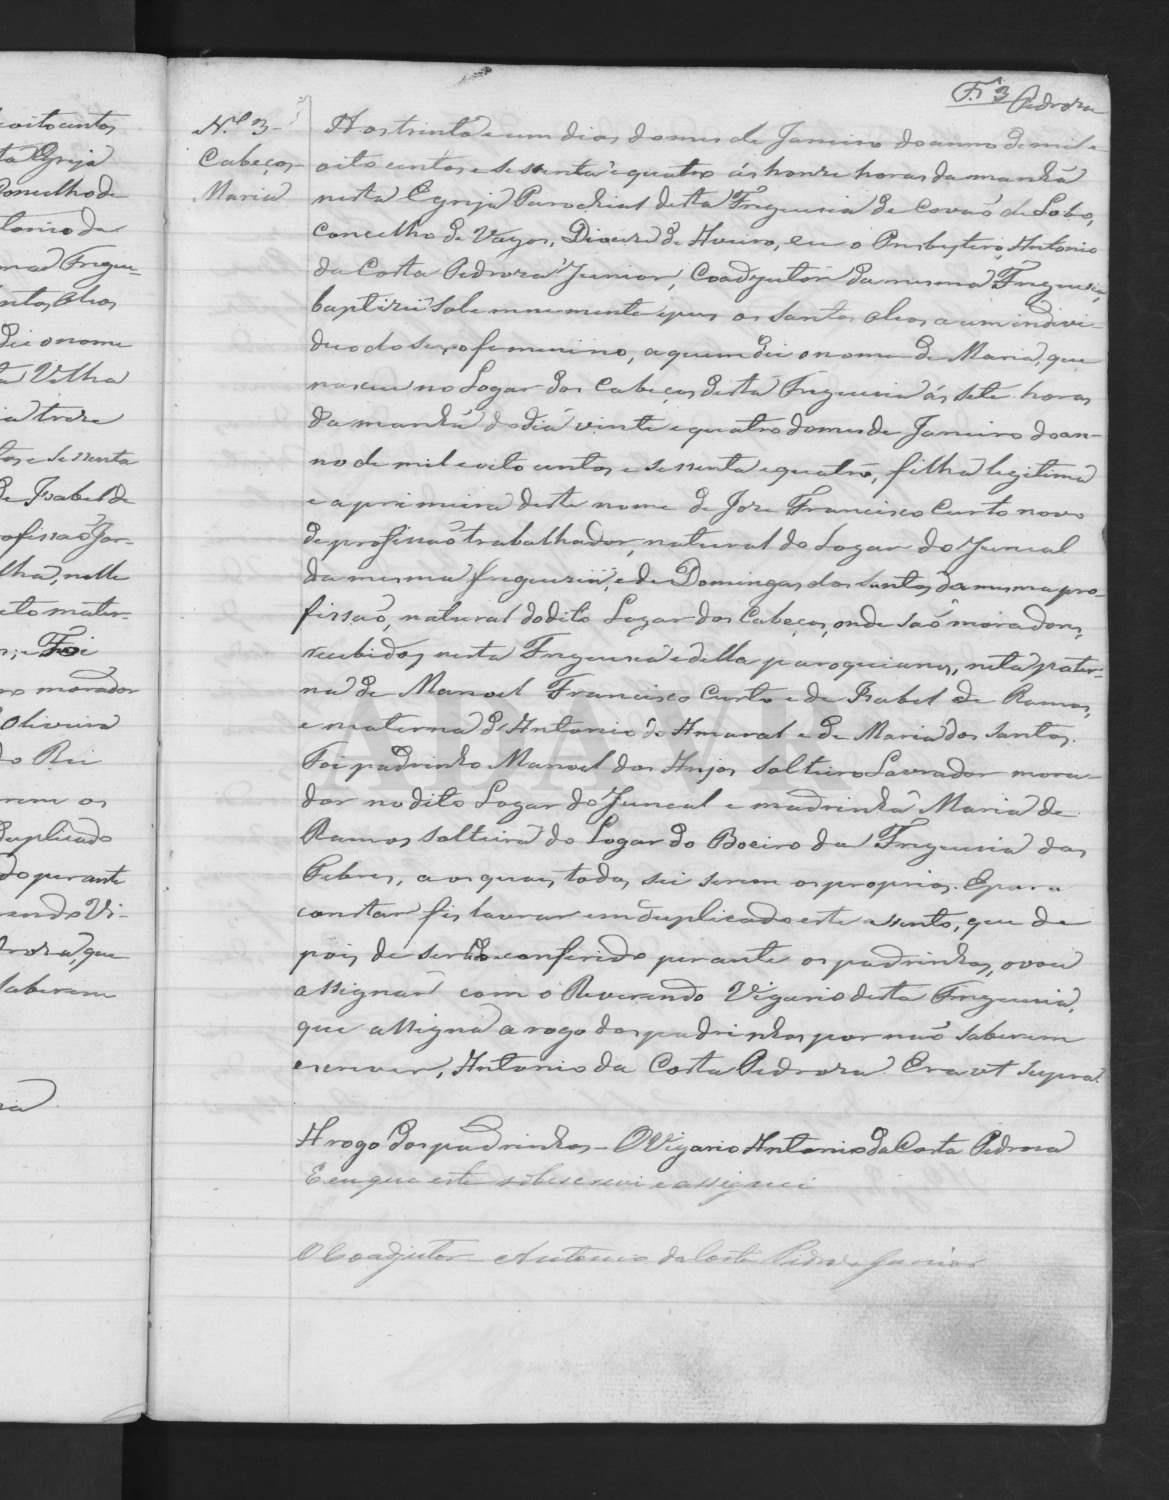 F.ª 3 Pedroza
N.º 3-
Cabeços
Maria
Aos trinta e um dias do mes de Janeiro do anno de mil e
oito centos e sessenta e quatro ás honze horas da manhã
nesta Egreja Parochial desta Freguesia de Covaõ do Lobo,
Concelho de Vagos, Diocese de Aveiro, eu o Presbytero Antonio
da Costa Pedroza Junior, Coadjutor da mesma Freguesia,
baptizei solemnemente e puz os santos oleos a um indivi-
duo do sexo femenino, a quem dei o nome de Maria, que
nasceu no Logar dos Cabeços desta Freguesia ás sete horas
da manhã do dia vinte e quatro do mes de Janeiro do an-
no de mil e oito centos e sessenta e quatro, filha legitima
e a primeira deste nome de Joze Francisco Curto novo
de profissaõ trabalhador, natural do Logar do Juncal
da mesma freguezia, e de Domingas dos Santos da mesma pro-
fissaõ, natural do dito Logar dos Cabeços, onde saõ moradores,
recebidos nesta Freguesia e della paroquianos, neta pater-
na de Manoel Francisco Curto e de Isabel de Ramos,
e materna de Antonio do Amaral e de Maria dos Santos.
Foi padrinho Manoel dos Anjos solteiro Lavrador mora-
dor no dito Logar do Juncal e madrinha Maria de
Ramos solteira do Logar do Boeiro da Freguesia das
Febres, a os quaes todos sei serem os proprios. E para
constar fis lavrar em duplicado este assento, que de
pois de ser lido e conferido perante os padrinhos, o vou
assignar com o Reverendo Vigario desta Freguesia,
que assigna a rogo dos padrinhos por naõ saberem
escrever, Antonio da Costa Pedroza. Era ut supra.
A rogo dos padrinhos - O Vigario Antonio da Costa Pedroza
E eu que este sobscrevi e assignei
O Coadjutor Antonio da Costa Pedroza Junior
oito centos
ta Egreja
Concelho de
tonio da
ma Fregue-
ntos oleos
dei o nome
a Velha
ia treze
tos e sessenta
de Isabel de
ofissaõ Jor-
lha, nelle
eto mater-
Foi
morador
Oliveira
do Rei
rem os
duplicado
do perante
rendo Vi-
droza, que
saberem
ADAVR